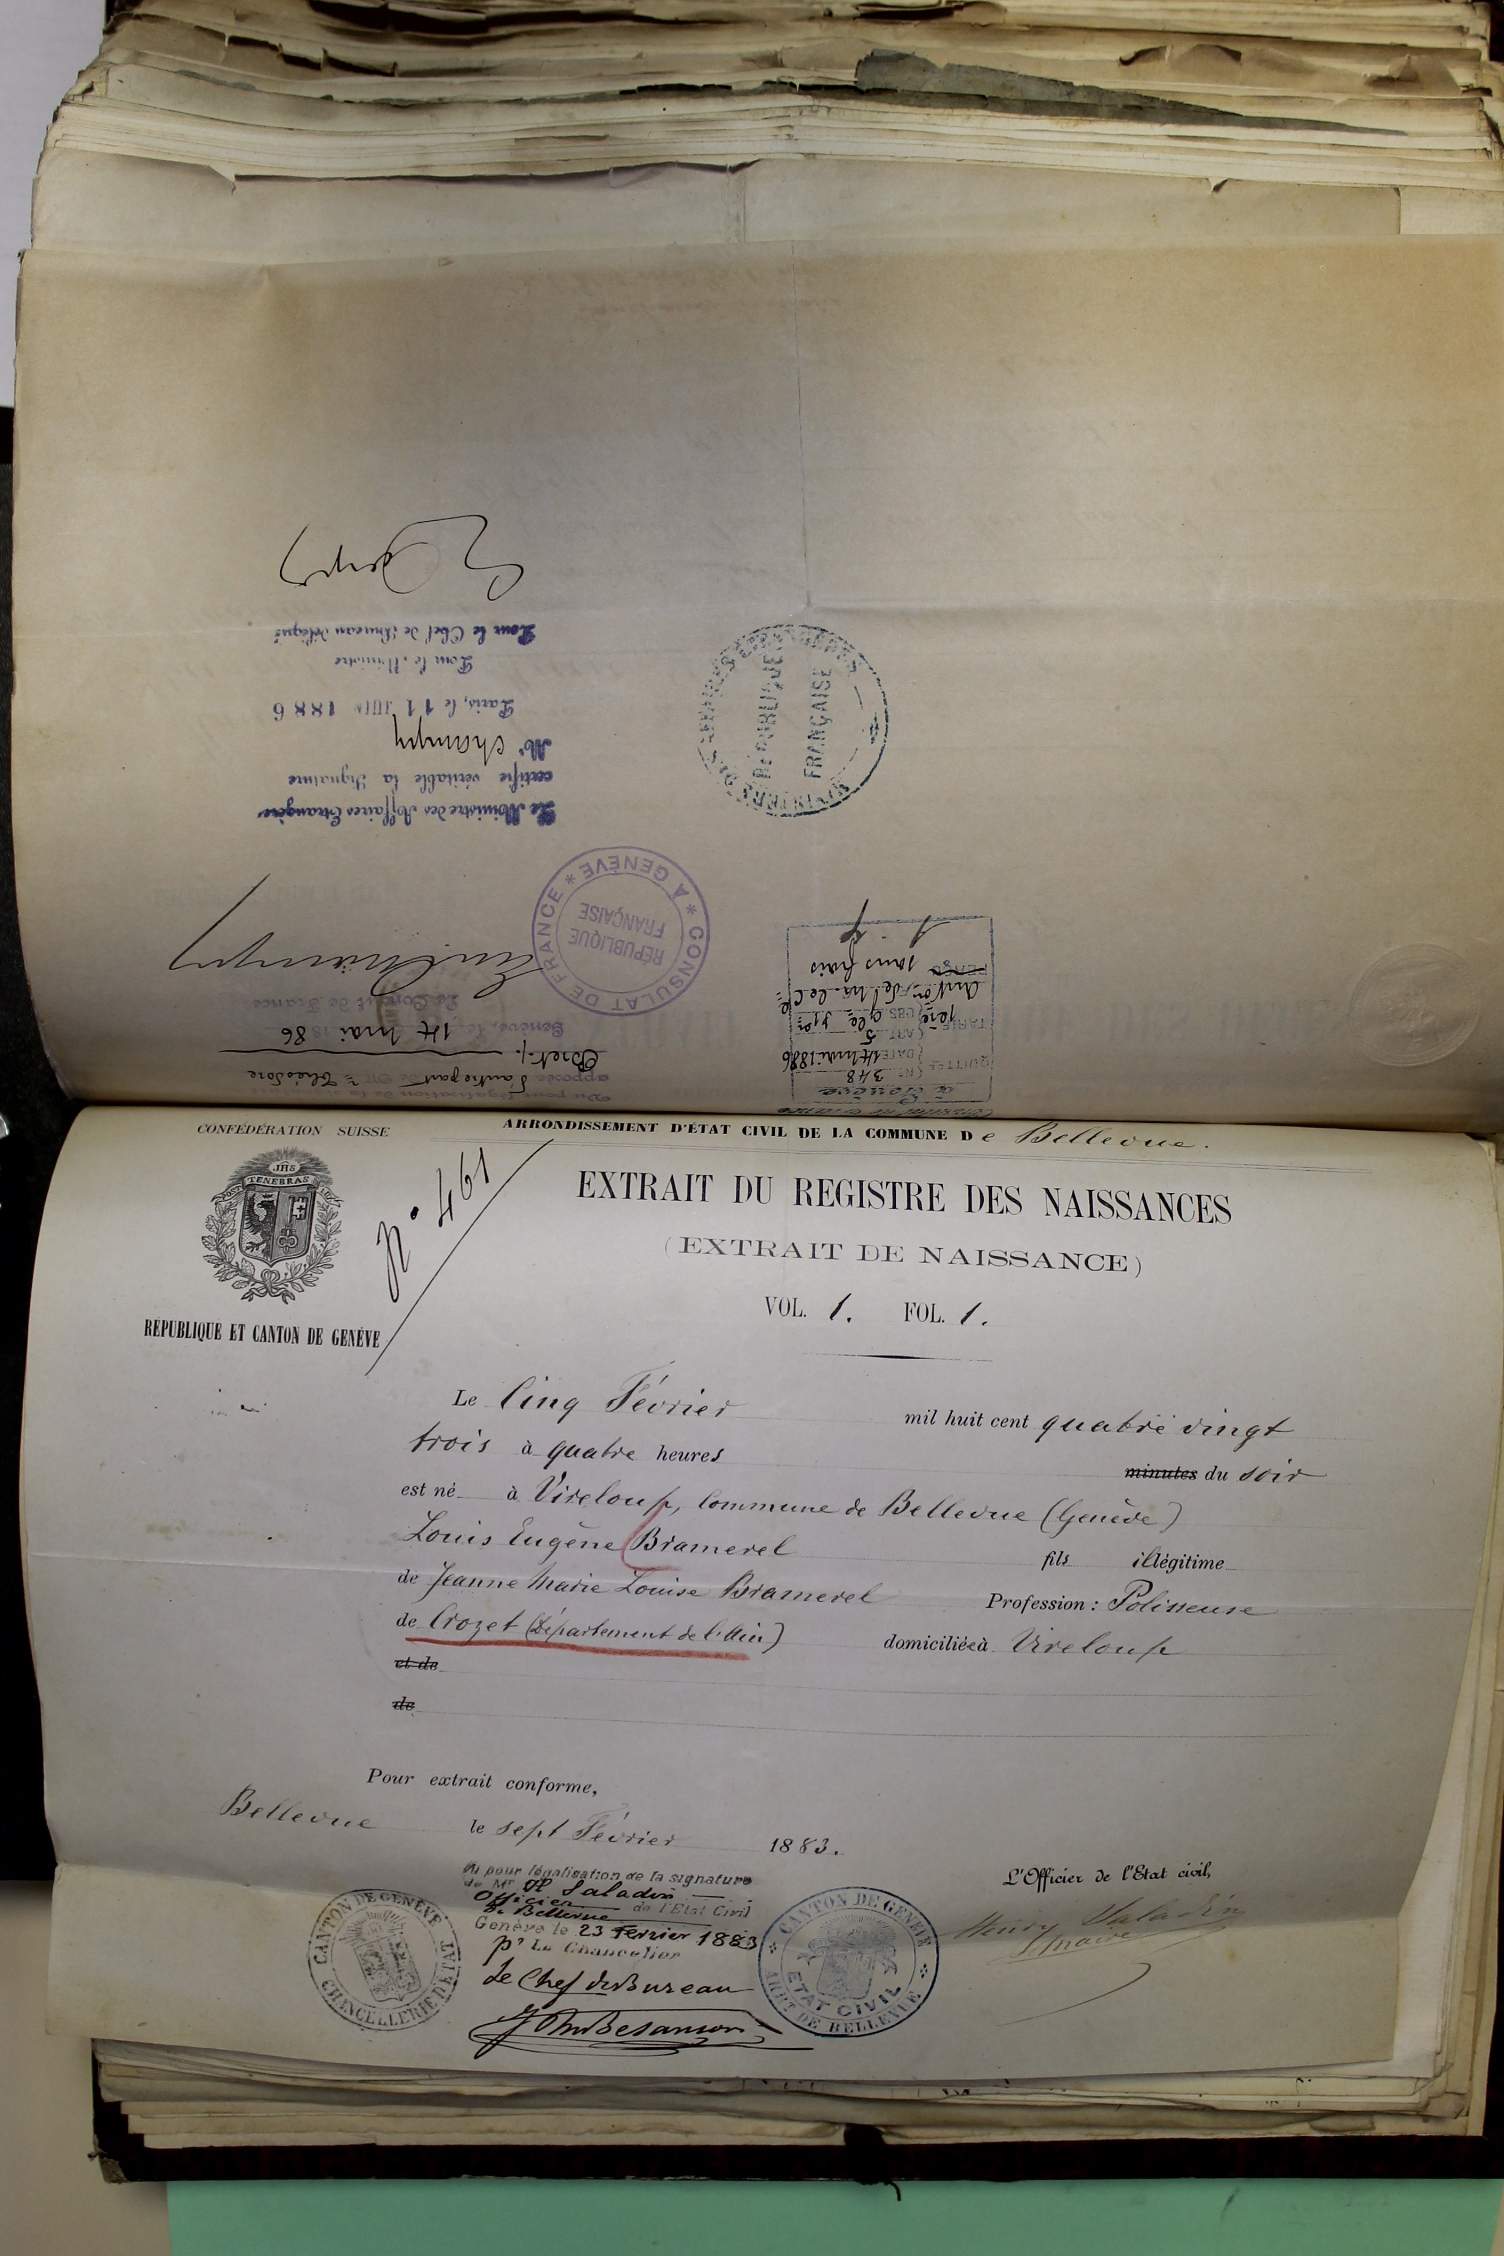 Pour le Chef de Bureau délégué
Pour le Ministre
Paris, le 11 JUIN 1886
Mr Champy
certifie véritable la signature
Le Ministre des Affaires Etrangères
MINISTÈRE DES AFFAIRES ETRANGÈRES
RÉPUBLIQUE
FRANÇAISE
* CONSULAT DE FRANCE * A GENÈVE
RÉPUBLIQUE
FRANÇAISE
Le Consul de France
Genève, le 14 mai 1886
Bret.
apposée d'autre part Mr Théodore
Vu pour légalisation de la signature
sans frais
TARIF ART. 5
QUITTCE DATE 14 mai 1886
No 348
à Genève
Consulat de France
CONFÉDÉRATION SUISSE
ARRONDISSEMENT D'ÉTAT CIVIL DE LA COMMUNE De Bellevue.
JHS
POST TENEBRAS LUX
No 461
EXTRAIT DU REGISTRE DES NAISSANCES
(EXTRAIT DE NAISSANCE)
VOL. 1. FOL. 1.
RÉPUBLIQUE ET CANTON DE GENÈVE
Le Cinq Février mil huit cent quatre vingt
trois à quatre heures minutes du soir
est né à Vireloup, Commune de Bellevue (Genève)
Louis Eugène Bramerel fils illégitime
de Jeanne Marie Louise Bramerel Profession : Polisseuse
de Crozet (Département de l'Ain) domiciliée à Vireloup
et de
de
Pour extrait conforme,
Bellevue le sept Février 1883.
L'Officier de l'Etat civil,
Henry Saladin
maire
Vu pour légalisation de la signature
de Mr H Saladin
Officier de l'Etat Civil
de Bellevue
Genève le 23 Fevrier 1883
pr Le Chancelier
Le Chef de Bureau
John Besançon
CANTON DE GENÈVE
CHANCELLERIE D'ETAT
CANTON DE GENÈVE
ETAT CIVIL
ARRT DE BELLEVUE